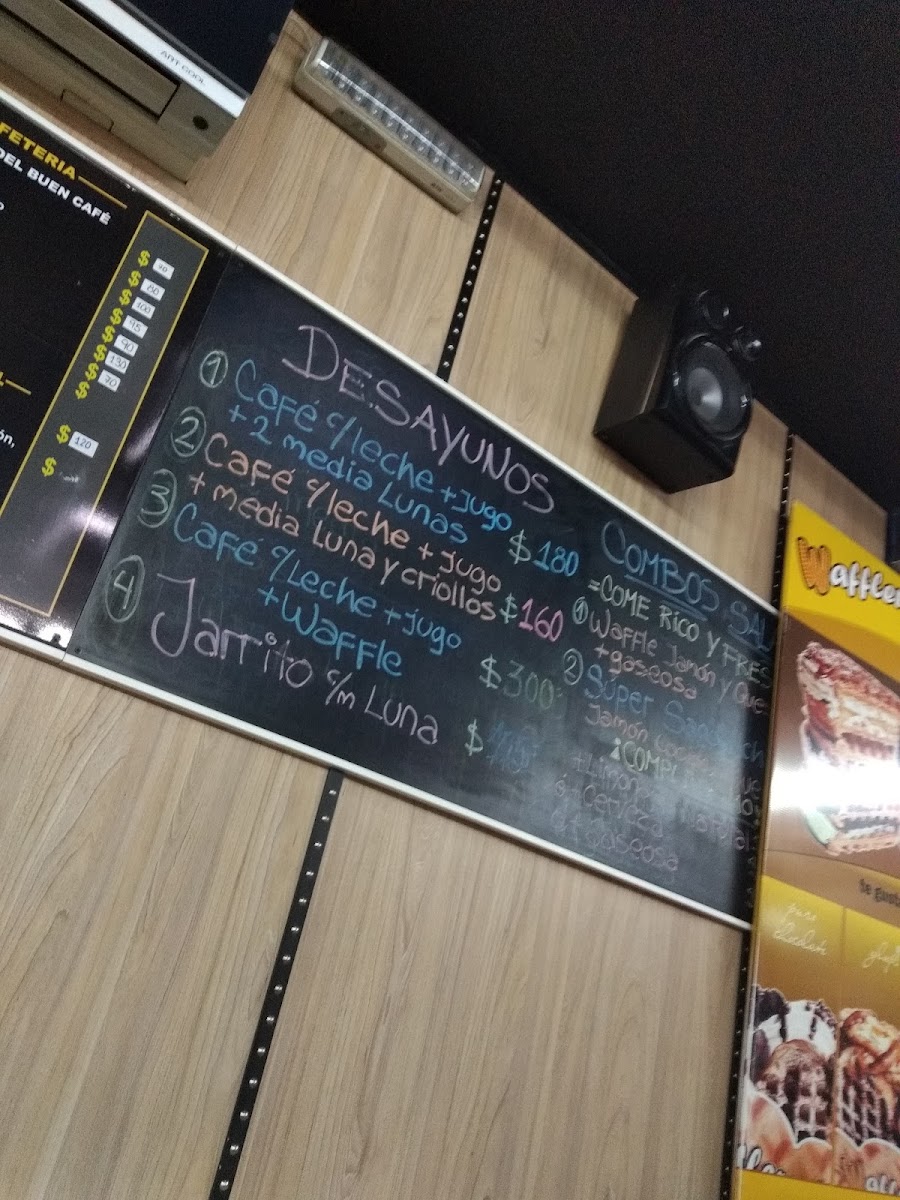 ART COOL
FETERIA
DEL BUEN CAFÉ
$ 90
$ 80
$ 100
$ 95
$ 90
$ 130
$ 70
$ 120
$
ón,
DESAYUNOS
① Café c/leche + jugo
+ 2 media Lunas $180
② Café c/leche + jugo
+ media Luna y criollos $160
③ Café c/Leche + jugo
+ Waffle $300
④ Jarrito c/m Luna $
COMBOS SAL
=COME RICO Y FRES
① Waffle Jamón y Que
+ gaseosa
② Súper Sandwich
Jamón
+ Limon
ó + Cerveza
ó + Gaseosa
Waffle
te gust
pure
chocolate